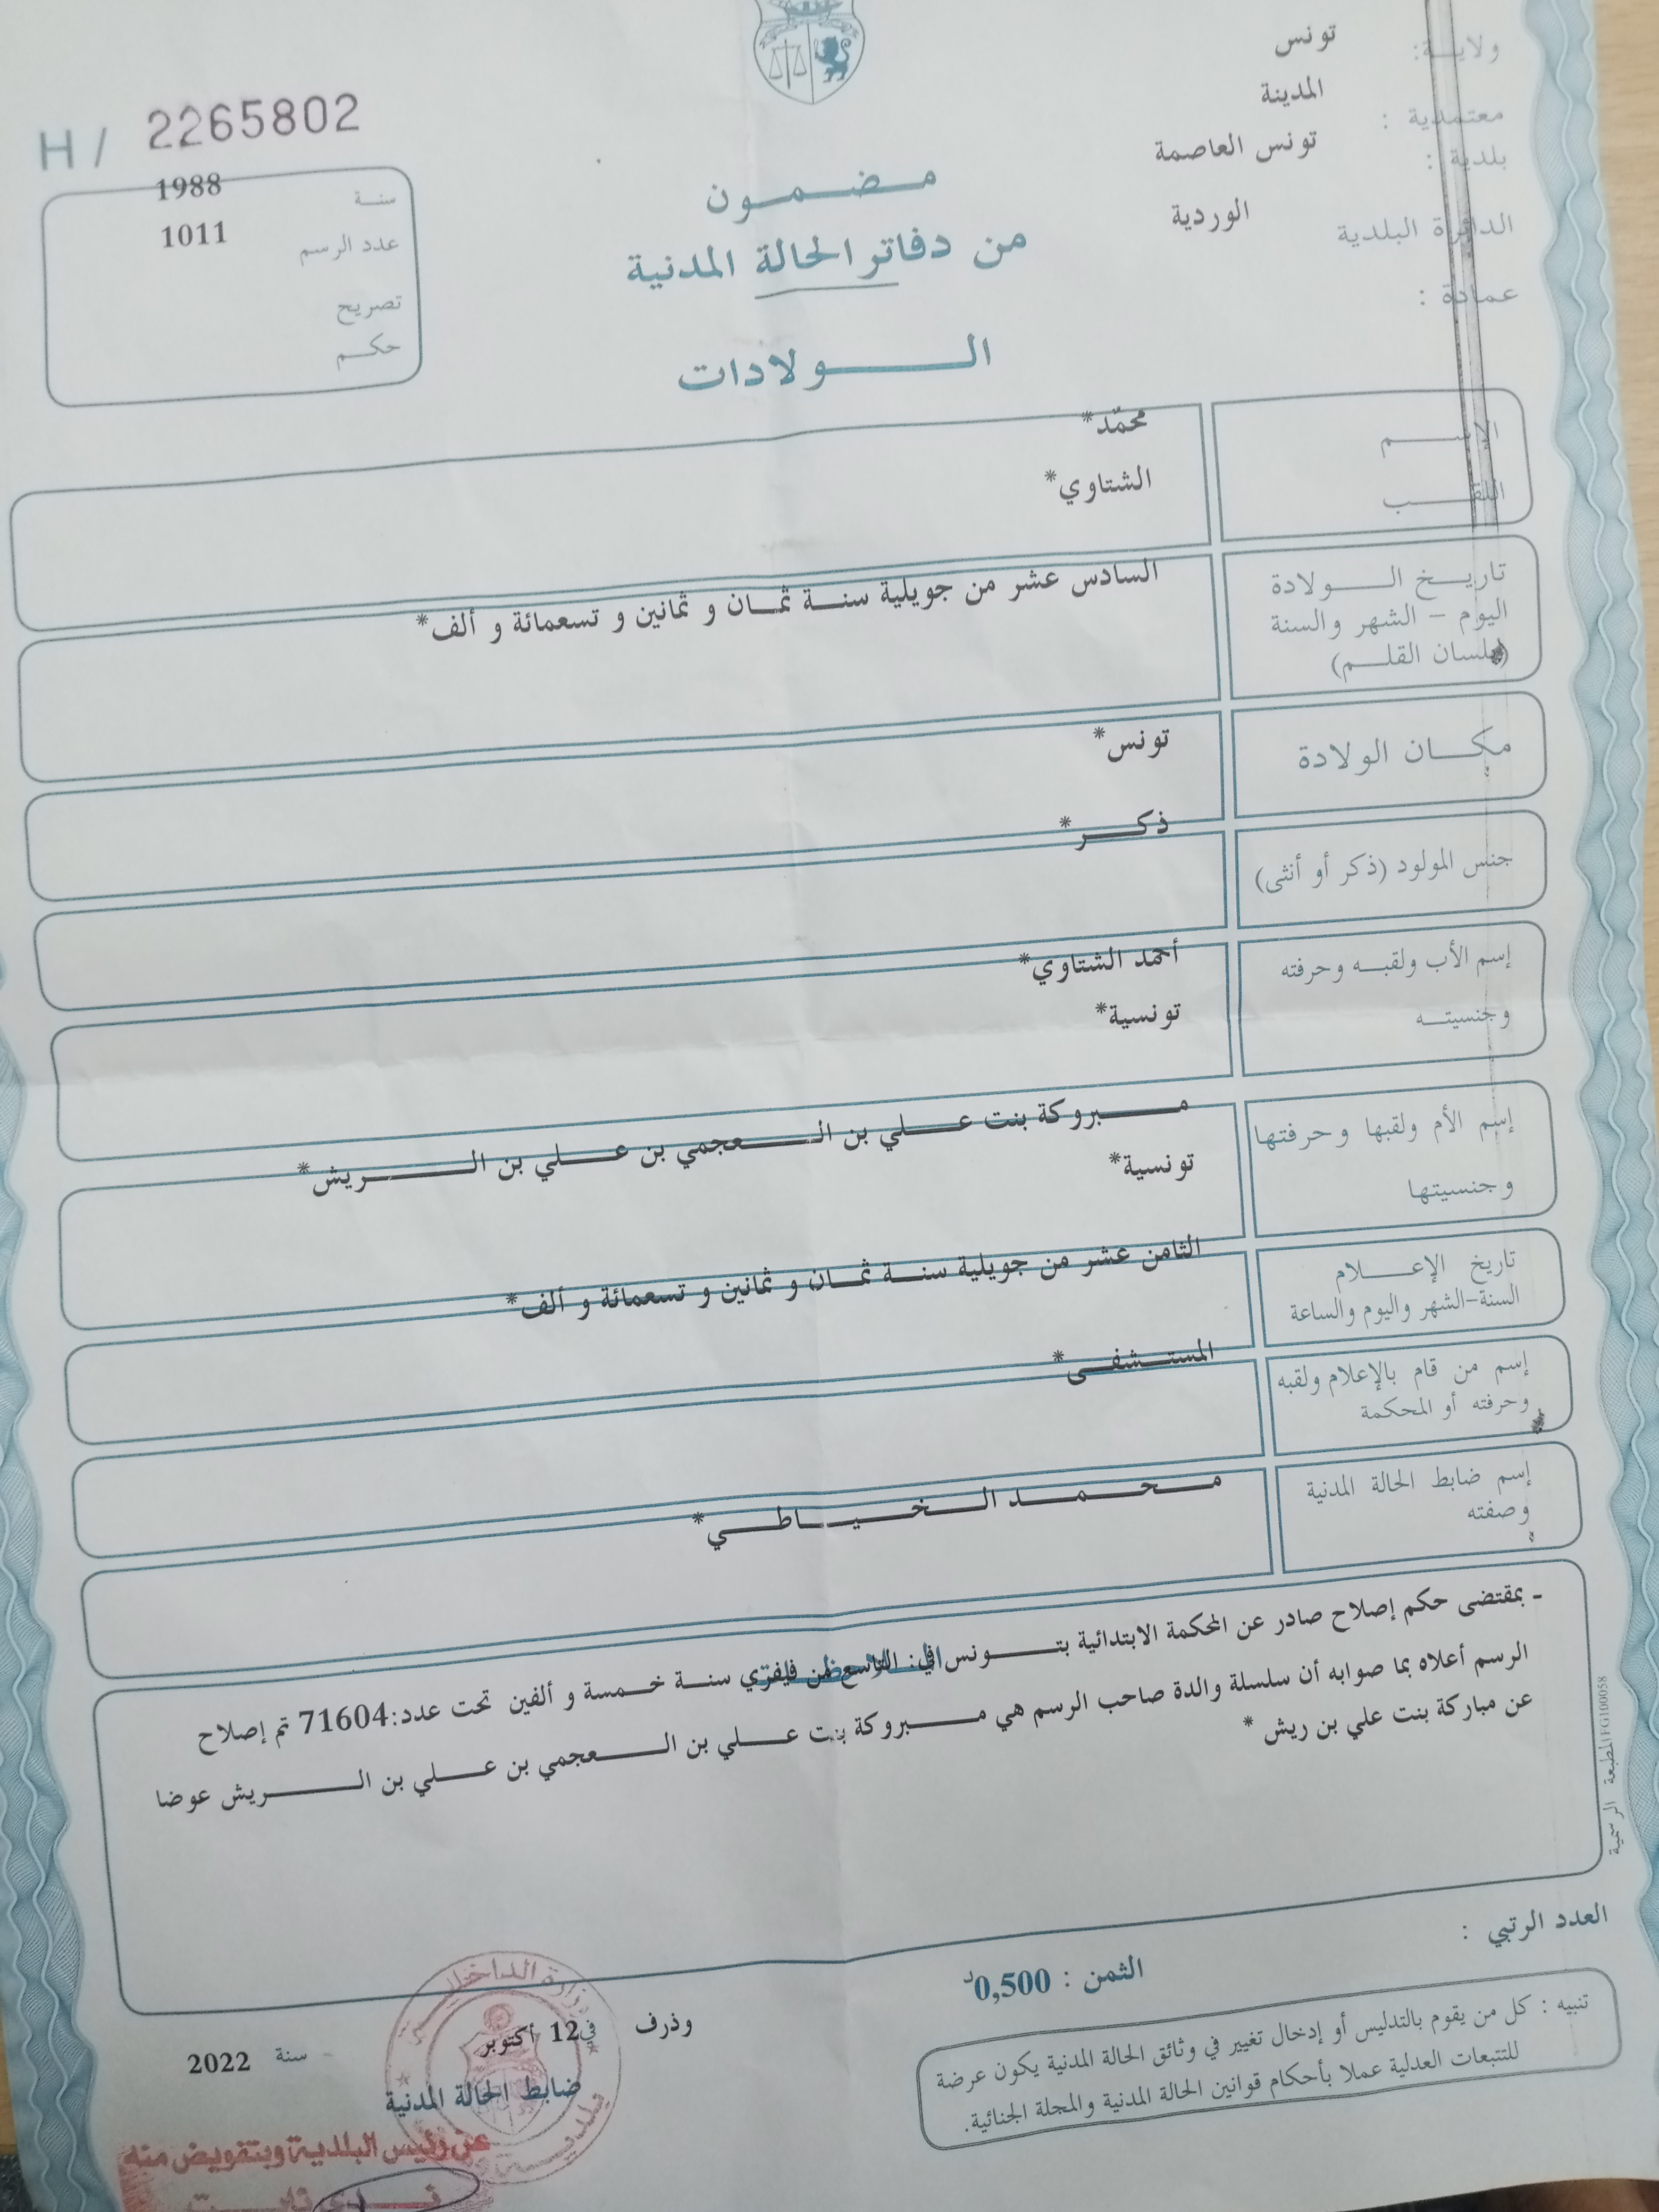 ولايـــة: تونس
معتمدية : المدينة
بلدية : تونس العاصمة
الدائرة البلدية الوردية
عمادة :
H / 2265802
سنـة 1988
عدد الرسم 1011
تصريح
حكـــم
مـــضـــمـــون
من دفاتر الحالة المدنية
الـــــــولادات
الإســـــم محمّد*
اللقـــــب الشتاوي*
تاريـــخ الـــــولادة
اليوم - الشهر والسنة
(بلسان القلـــم)
السادس عشر من جويلية سنــة ثمــان و ثمانين و تسعمائة و ألف*
مكـــان الولادة تونس*
جنس المولود (ذكر أو أنثى) ذكـــر*
إسم الأب ولقبـــه وحرفته أحمد الشتاوي*
وجنسيتـــه تونسية*
إسم الأم ولقبها وحرفتها مـــــبروكة بنت عـــــلي بن الـــــعجمي بن عـــــلي بن الـــــريش*
وجنسيتها تونسية*
تاريخ الإعـــــلام
السنة-الشهر واليوم والساعة
الثامن عشر من جويلية سنــة ثمــان و ثمانين و تسعمائة و ألف*
إسم من قام بالإعلام ولقبه
وحرفته أو المحكمة
المستـــشفـــى*
إسم ضابط الحالة المدنية
وصفته
مـــحـــمـــد الـــخـــيـــاطـــي*
- بمقتضى حكم إصلاح صادر عن المحكمة الابتدائية بتـــــونس في: التاسع من فيفري سنــة خـــمسة و ألفين تحت عدد:71604 تم إصلاح
الرسم أعلاه بما صوابه أن سلسلة والدة صاحب الرسم هي مـــــبروكة بنت عـــــلي بن الـــــعجمي بن عـــــلي بن الـــــريش عوضا
عن مباركة بنت علي بن ريش *
المطبعة الرسمية FG100058
العدد الرتبي :
الثمن : 0,500د
تنبيه : كل من يقوم بالتدليس أو إدخال تغيير في وثائق الحالة المدنية يكون عرضة
للتتبعات العدلية عملا بأحكام قوانين الحالة المدنية والمجلة الجنائية.
وذرف في 12 أكتوبر سنة 2022
ضابط الحالة المدنية
وزارة الداخلية
بلدية
عن رئيس البلدية وبتفويض منه